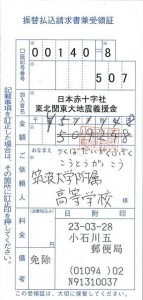 振替払込請求書兼受領証
口座記号番号
00140-8
507
加入者名
日本赤十字社
東北関東大地震義援金
金額
509248
ご依頼人
おなまえ
つくばだいがくふぞく
こうとうがっこう
筑波大学附属
高等学校
料金
日附印
23-03-28
小石川五
郵便局
備考
免除
(01094) 02
N91310037
この受領証は、大切に保管してください。
記載事項を訂正した場合は、その箇所に訂正印を押してください。